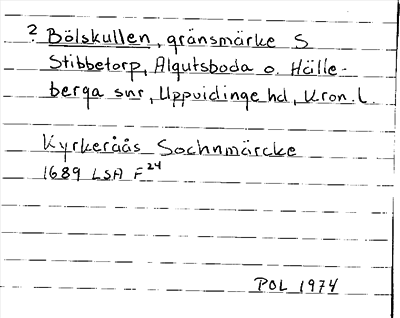 ? Bölskullen, gränsmärke S
Stibbetorp, Algutsboda o. Hälle-
berga snr, Uppvidinge hd, Kron. l.
Kyrkeråås Sochnmärcke
1689 LSA F24
POL 1974